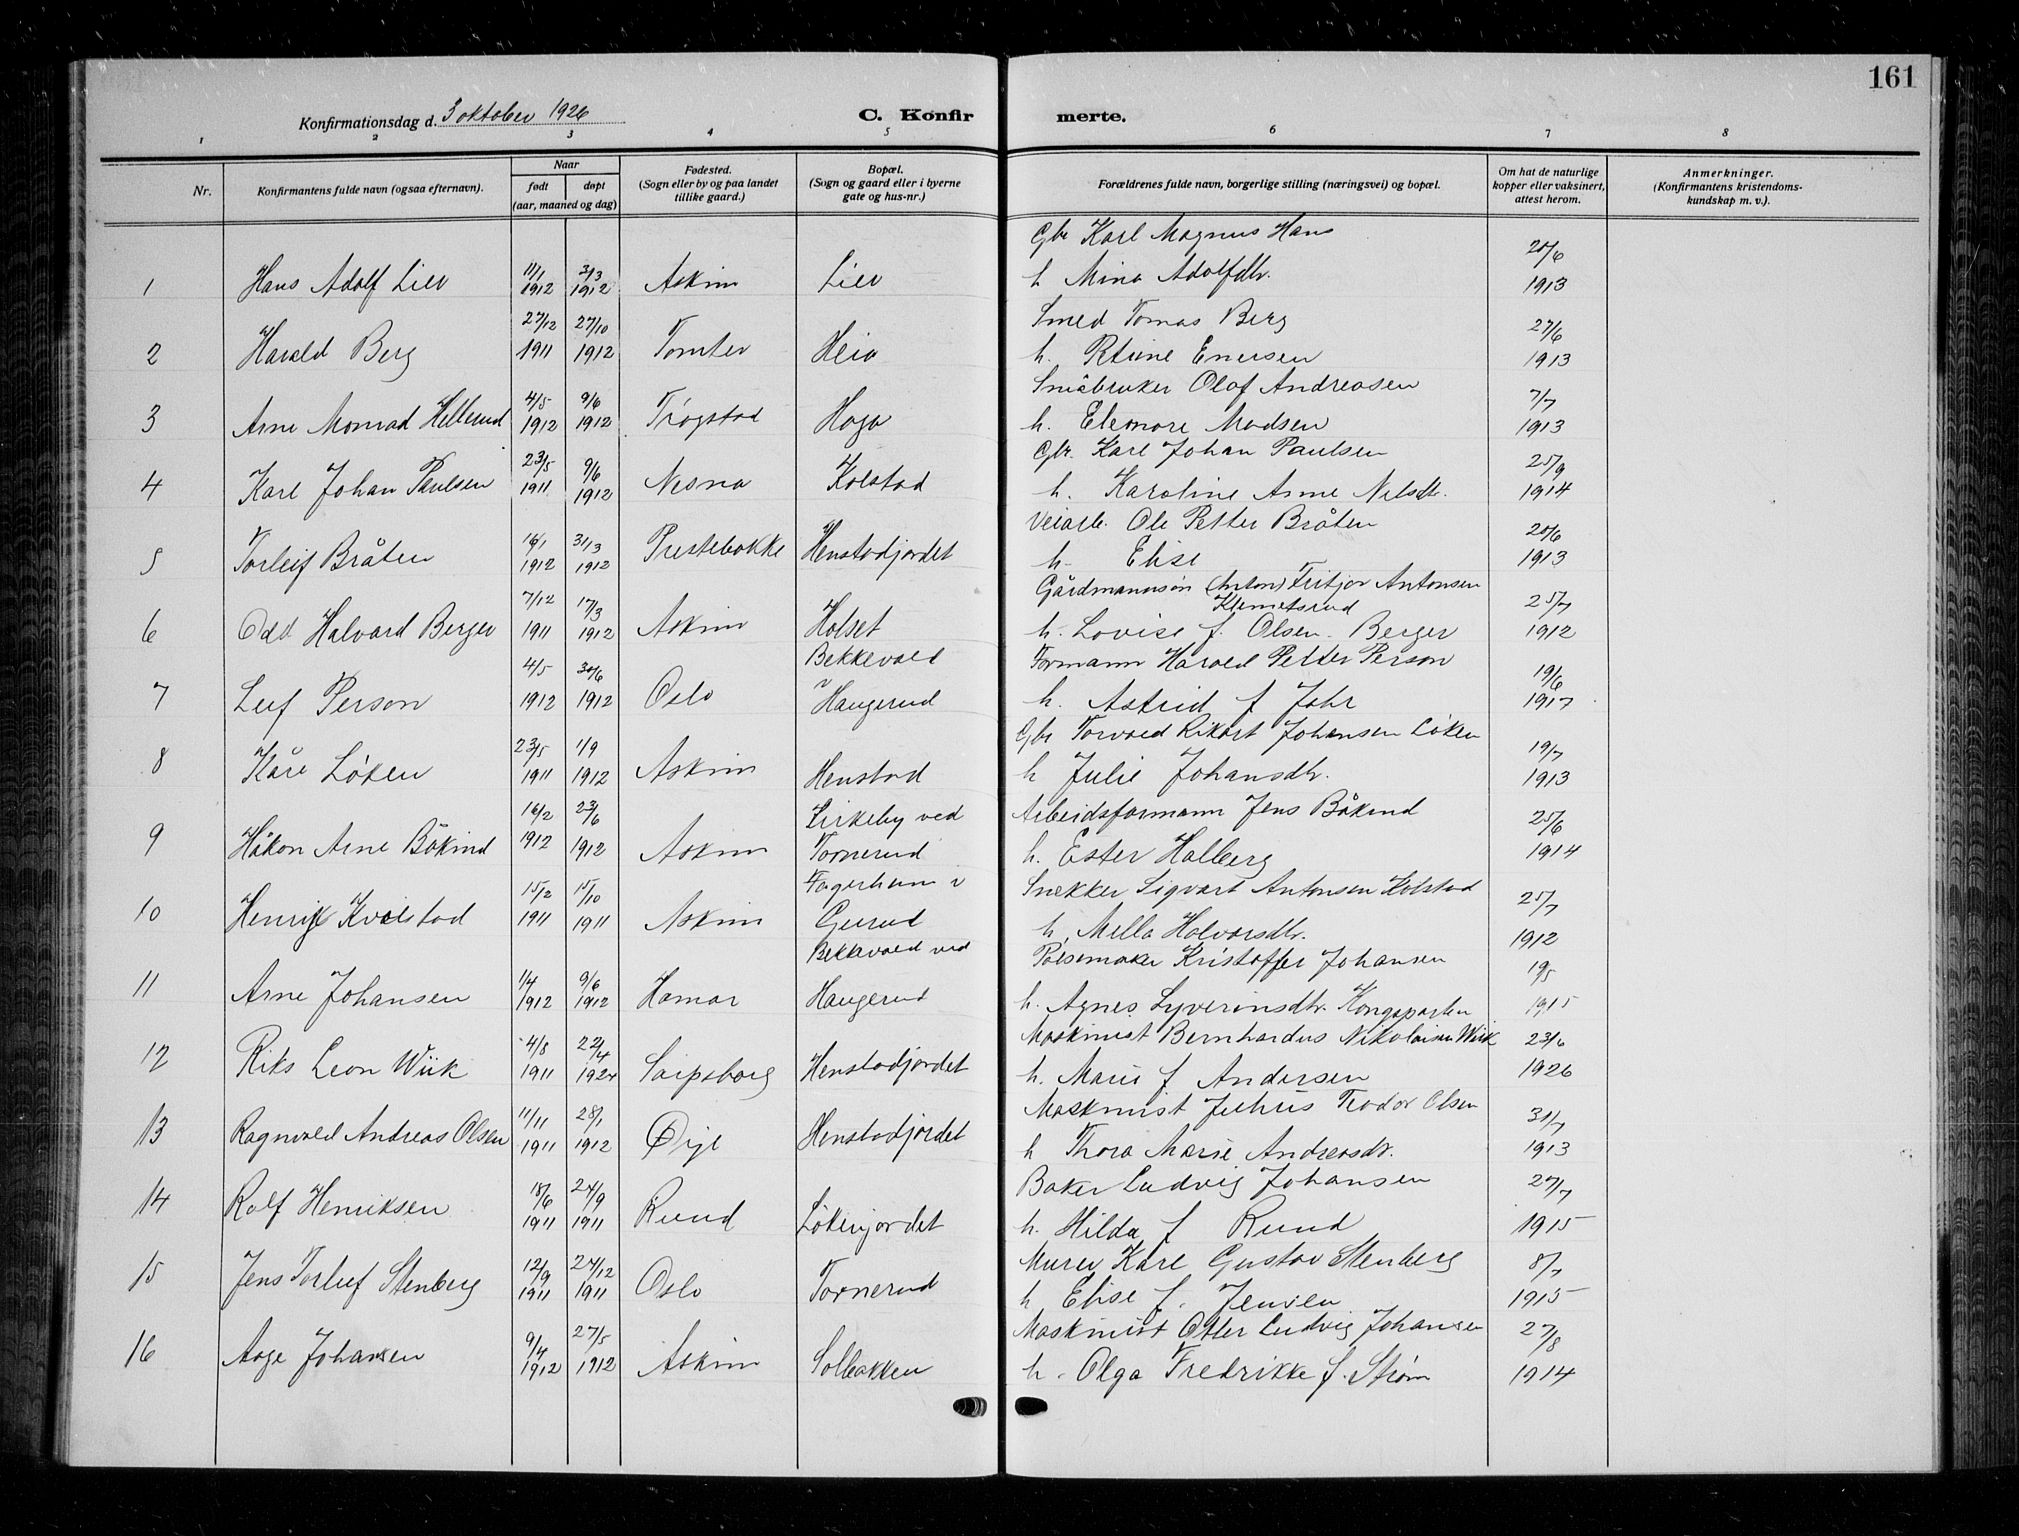 161
Konfirmationsdag d. 3 oktober 1926
C. Konfirmerte.
1 2 3 4 5 6 7 8
Nr.
Konfirmantens fulde navn (ogsaa efternavn).
Naar
født
døpt
(aar, maaned og dag)
Fødested.
(Sogn eller by og paa landet
tillike gaard.)
Bopæl.
(Sogn og gaard eller i byerne
gate og hus-nr.)
Forældrenes fulde navn, borgerlige stilling (næringsvei) og bopæl.
Om hat de naturlige
kopper eller vaksinert,
attest herom.
Anmerkninger.
(Konfirmantens kristendoms-
kundskap m. v.).
Gbr Karl Magnus Hans
1 Hans Adolf Lier 11/1 1912 3/3 1912 Askim Lier h Mina Adolfdtr. 20/6 1913
Smed Tomas Berg
2 Harald Berg 27/12 1911 27/10 1912 Tomter Heia h. Enersen 27/6 1913
Småbruker Olaf Andreasen
3 Arne Monrad Hellerud 4/5 1912 9/6 1912 Trøgstad Haga h. Eleonore Madsen 7/7 1913
Gbr. Karl Johan Paulsen
4 Karl Johan Paulsen 23/5 1911 9/6 1912 Nesna Kolstad h. Karoline Anne Nilsdtr. 25/9 1914
Veiarb. Ole Petter Bråten
5 Torleif Bråten 16/1 1912 31/3 1912 Prestebakke Henstadjordet h. Elise 20/6 1913
Gårdmannssøn (Anton) Fritjor Antonsen
Klemetsrud
6 Odd Halvard Berger 7/12 1911 17/3 1912 Askim Holset h. Lovise f. Olsen Berger 25/7 1912
Bekkevold Formann Harald Petter Person
7 Leif Person 4/5 1912 30/6 1912 Oslo v Haugerud h. Astrid f Johr 19/6 1917
Gbr Torvald Rikart Johansen Løken
8 Kåre Løken 23/5 1911 1/9 1912 Askim Henstad h Julie Johansdtr. 19/7 1913
Kirkeby ved Arbeidsformann Jens Båkind
9 Håkon Arne Båkind 16/2 1912 23/6 1912 Askim Tornerud h. Ester Halberg 25/6 1914
Fagerheim v Snekker Sigvart Antonsen Kolstad
10 Henrik Kvolstad 15/2 1911 15/10 1911 Askim Gurud h. Mella Halvorsdtr. 25/7 1912
Bekkevold ved Pølsemaker Kristoffer Johansen
11 Arne Johansen 1/4 1912 9/6 1912 Hamar Haugerud h. Agnes Syverinsdtr. Kongsparten 19/5 1915
Maskinist Bernhardus Nikolaisen Wiik
12 Riks Leon Wiik 4/8 1911 22/4 1924 Sarpsborg Henstadjordet h. Marie f Andersen 23/6 1926
Maskinist Julius Teodor Olsen
13 Ragnvald Andreas Olsen 11/11 1911 28/1 1912 Øije Henstadjordet h Thora Marie Andreasdtr. 31/7 1913
Baker Ludvig Johansen
14 Rolf Henriksen 18/6 1911 24/9 1911 Ruud Løkenjordet h. Hilda f Ruud 27/7 1915
Murer Karl Gustav Stenberg
15 Jens Torleif Stenberg 12/9 1911 24/12 1911 Oslo Tornerud h Elise f. Jensen 8/7 1915
Maskinist Otter Ludvig Johansen
16 Aage Johansen 9/4 1912 27/5 1912 Askim Solbakken h. Olga Fredrikke f. Strøm 27/8 1914